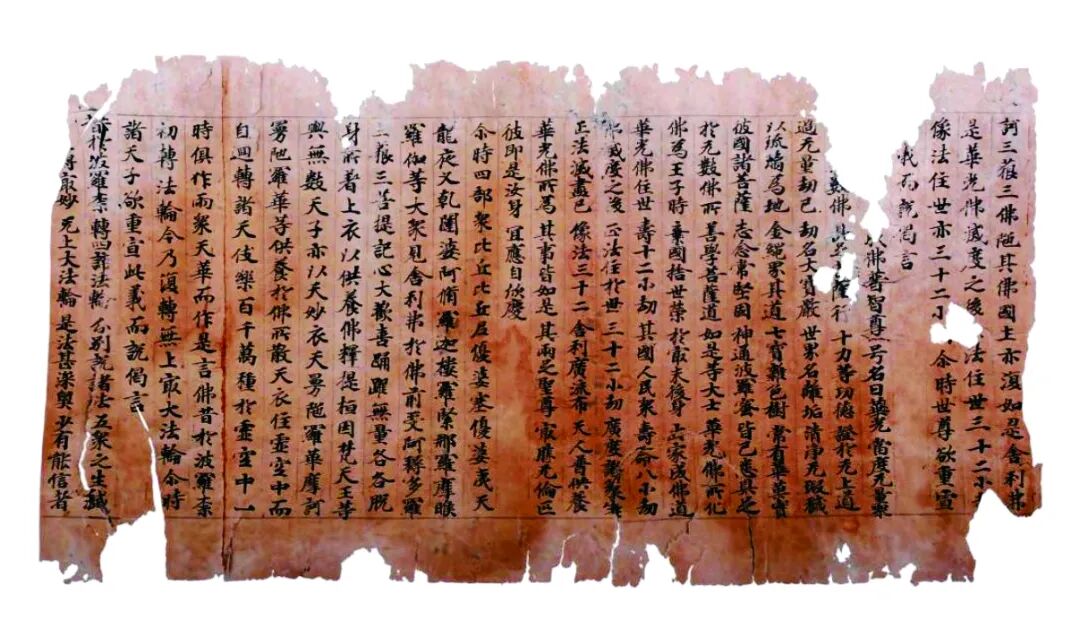 訶三藐三佛陁其佛國土亦復如是舍利弗
是華光佛滅度之後 法住世三十二小
像法住世亦三十二小 尒時世尊欲重宣
義而說偈言
佛普智尊 号名曰華光 當度无量衆
數佛 薩行 十力等功德 證於无上道
過无量劫已 劫名大寶嚴 世界名離垢 清淨无瑕穢
以琉璃為地 金繩界其道 七寶雜色樹 常有華菓實
彼國諸菩薩 志念常堅固 神通波羅蜜 皆已悉具足
於无數佛所 善學菩薩道 如是等大士 華光佛所化
佛為王子時 棄國捨世榮 於㝡末後身 出家成佛道
華光佛住世 壽十二小劫 其國人民衆 壽命八小劫
佛滅度之後 正法住於世 三十二小劫 廣度諸衆生
正法滅盡已 像法三十二 舍利廣流布 天人普供養
華光佛所為 其事皆如是 其兩足聖尊 㝡勝无倫匹
彼即是汝身 宜應自欣慶
尒時四部衆比丘比丘尼優婆塞優婆夷天
龍夜叉乹闥婆阿脩羅迦樓羅緊那羅摩睺
羅伽等大衆見舍利弗於佛前受阿耨多羅
三藐三菩提記心大歡喜踊躍無量各各脫
身所著上衣以供養佛釋提桓因梵天王等
與無數天子亦以天妙衣天曼陁羅華摩訶
曼陁羅華等供養於佛所散天衣住虛空中而
自迴轉諸天伎樂百千萬種於虛空中一
時俱作雨衆天華而作是言佛昔於波羅柰
初轉法輪今乃復轉無上㝡大法輪尒時
諸天子欲重宣此義而說偈言
昔於波羅柰 轉四諦法輪 分別說諸法 五衆之生滅
㝡妙 无上大法輪 是法甚深奧 少有能信者